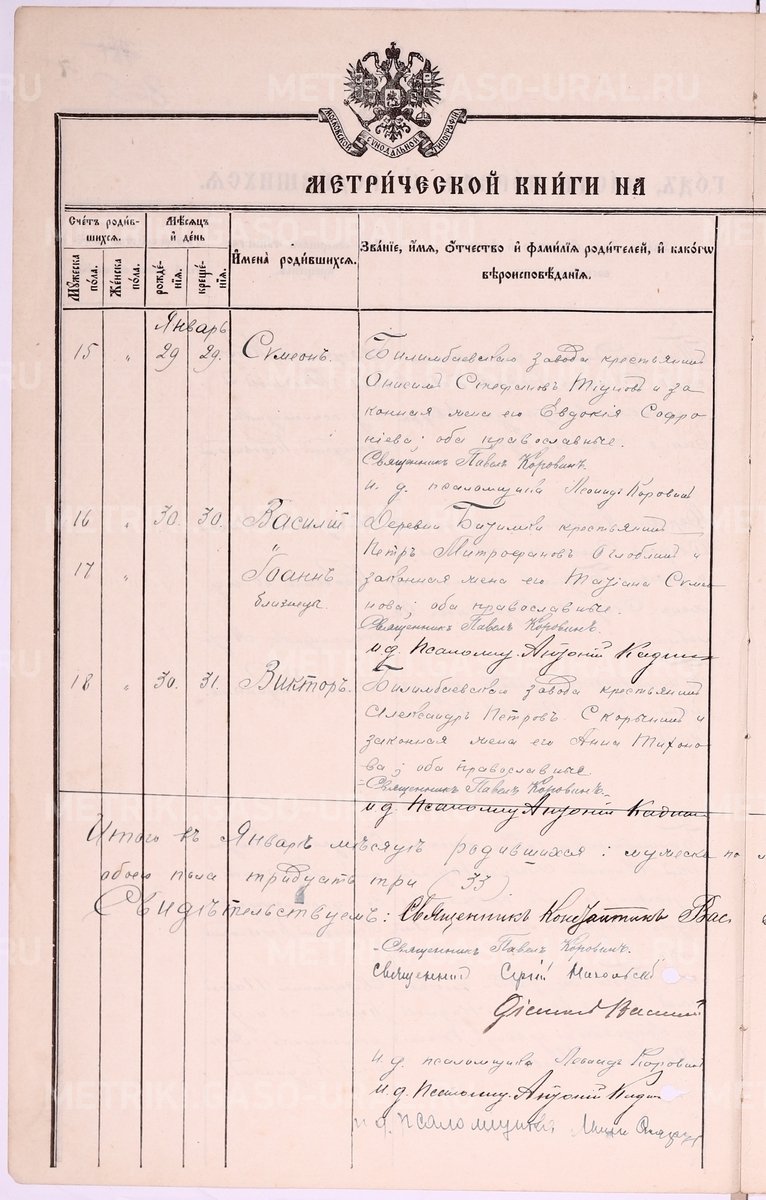 МОСКОВСКОЙ СѴНОДАЛЬНОЙ ТИПОГРАФІИ
МЕТРИ́ЧЕСКОЙ КНИ́ГИ НА
Счетъ роди́вшихся.
Мѣсяцъ и день
Имена̀ роди́вшихся.
Зва́ніе, и́мя, о́тчество и фами́лія роди́телей, и како́гѡ
вѣроисповѣ́данія.
Му́жеска по́ла.
Же́нска по́ла.
рожде́нія.
креще́нія.
Январь
15 " 29 29. Сѵмеонъ. Билимбаевскаго завода крестьянинъ
Онисимъ Стефановъ Тіуновъ и за
конная жена его Евдокія Софро
ніева; оба православные.
Священникъ Павелъ Коровинъ.
и. д. псаломщика Леонидъ Коровин
16 " 30. 30. Василій Деревни крестьянинъ
Петръ Митрофановъ Оглоблинъ и
17 " " Іоаннъ законная жена его Татіана Сѵме
близнецы. нова; оба православные.
Священникъ Павелъ Коровинъ.
и. д. Псаломщ. Антоній
18 " 30. 31. Викторъ. Билимбаевскаго завода крестьянинъ
Александръ Петровъ Скорынинъ и
законная жена его Анна Тихоно
ва; оба православные.
Священникъ Павелъ Коровинъ.
и д Псаломщ Антоній
Итого въ Январѣ мѣсяцѣ родившихся: мужеска по
обоего пола тридцать три (33)
Свидѣтельствуемъ: Священникъ Константинъ Вас
Священникъ Павелъ Коровинъ.
Священникъ Сергій
Діаконъ Василій
и. д. псаломщика Леонидъ Коровин
и. д. Псаломщ. Антоній
и д. псаломщика